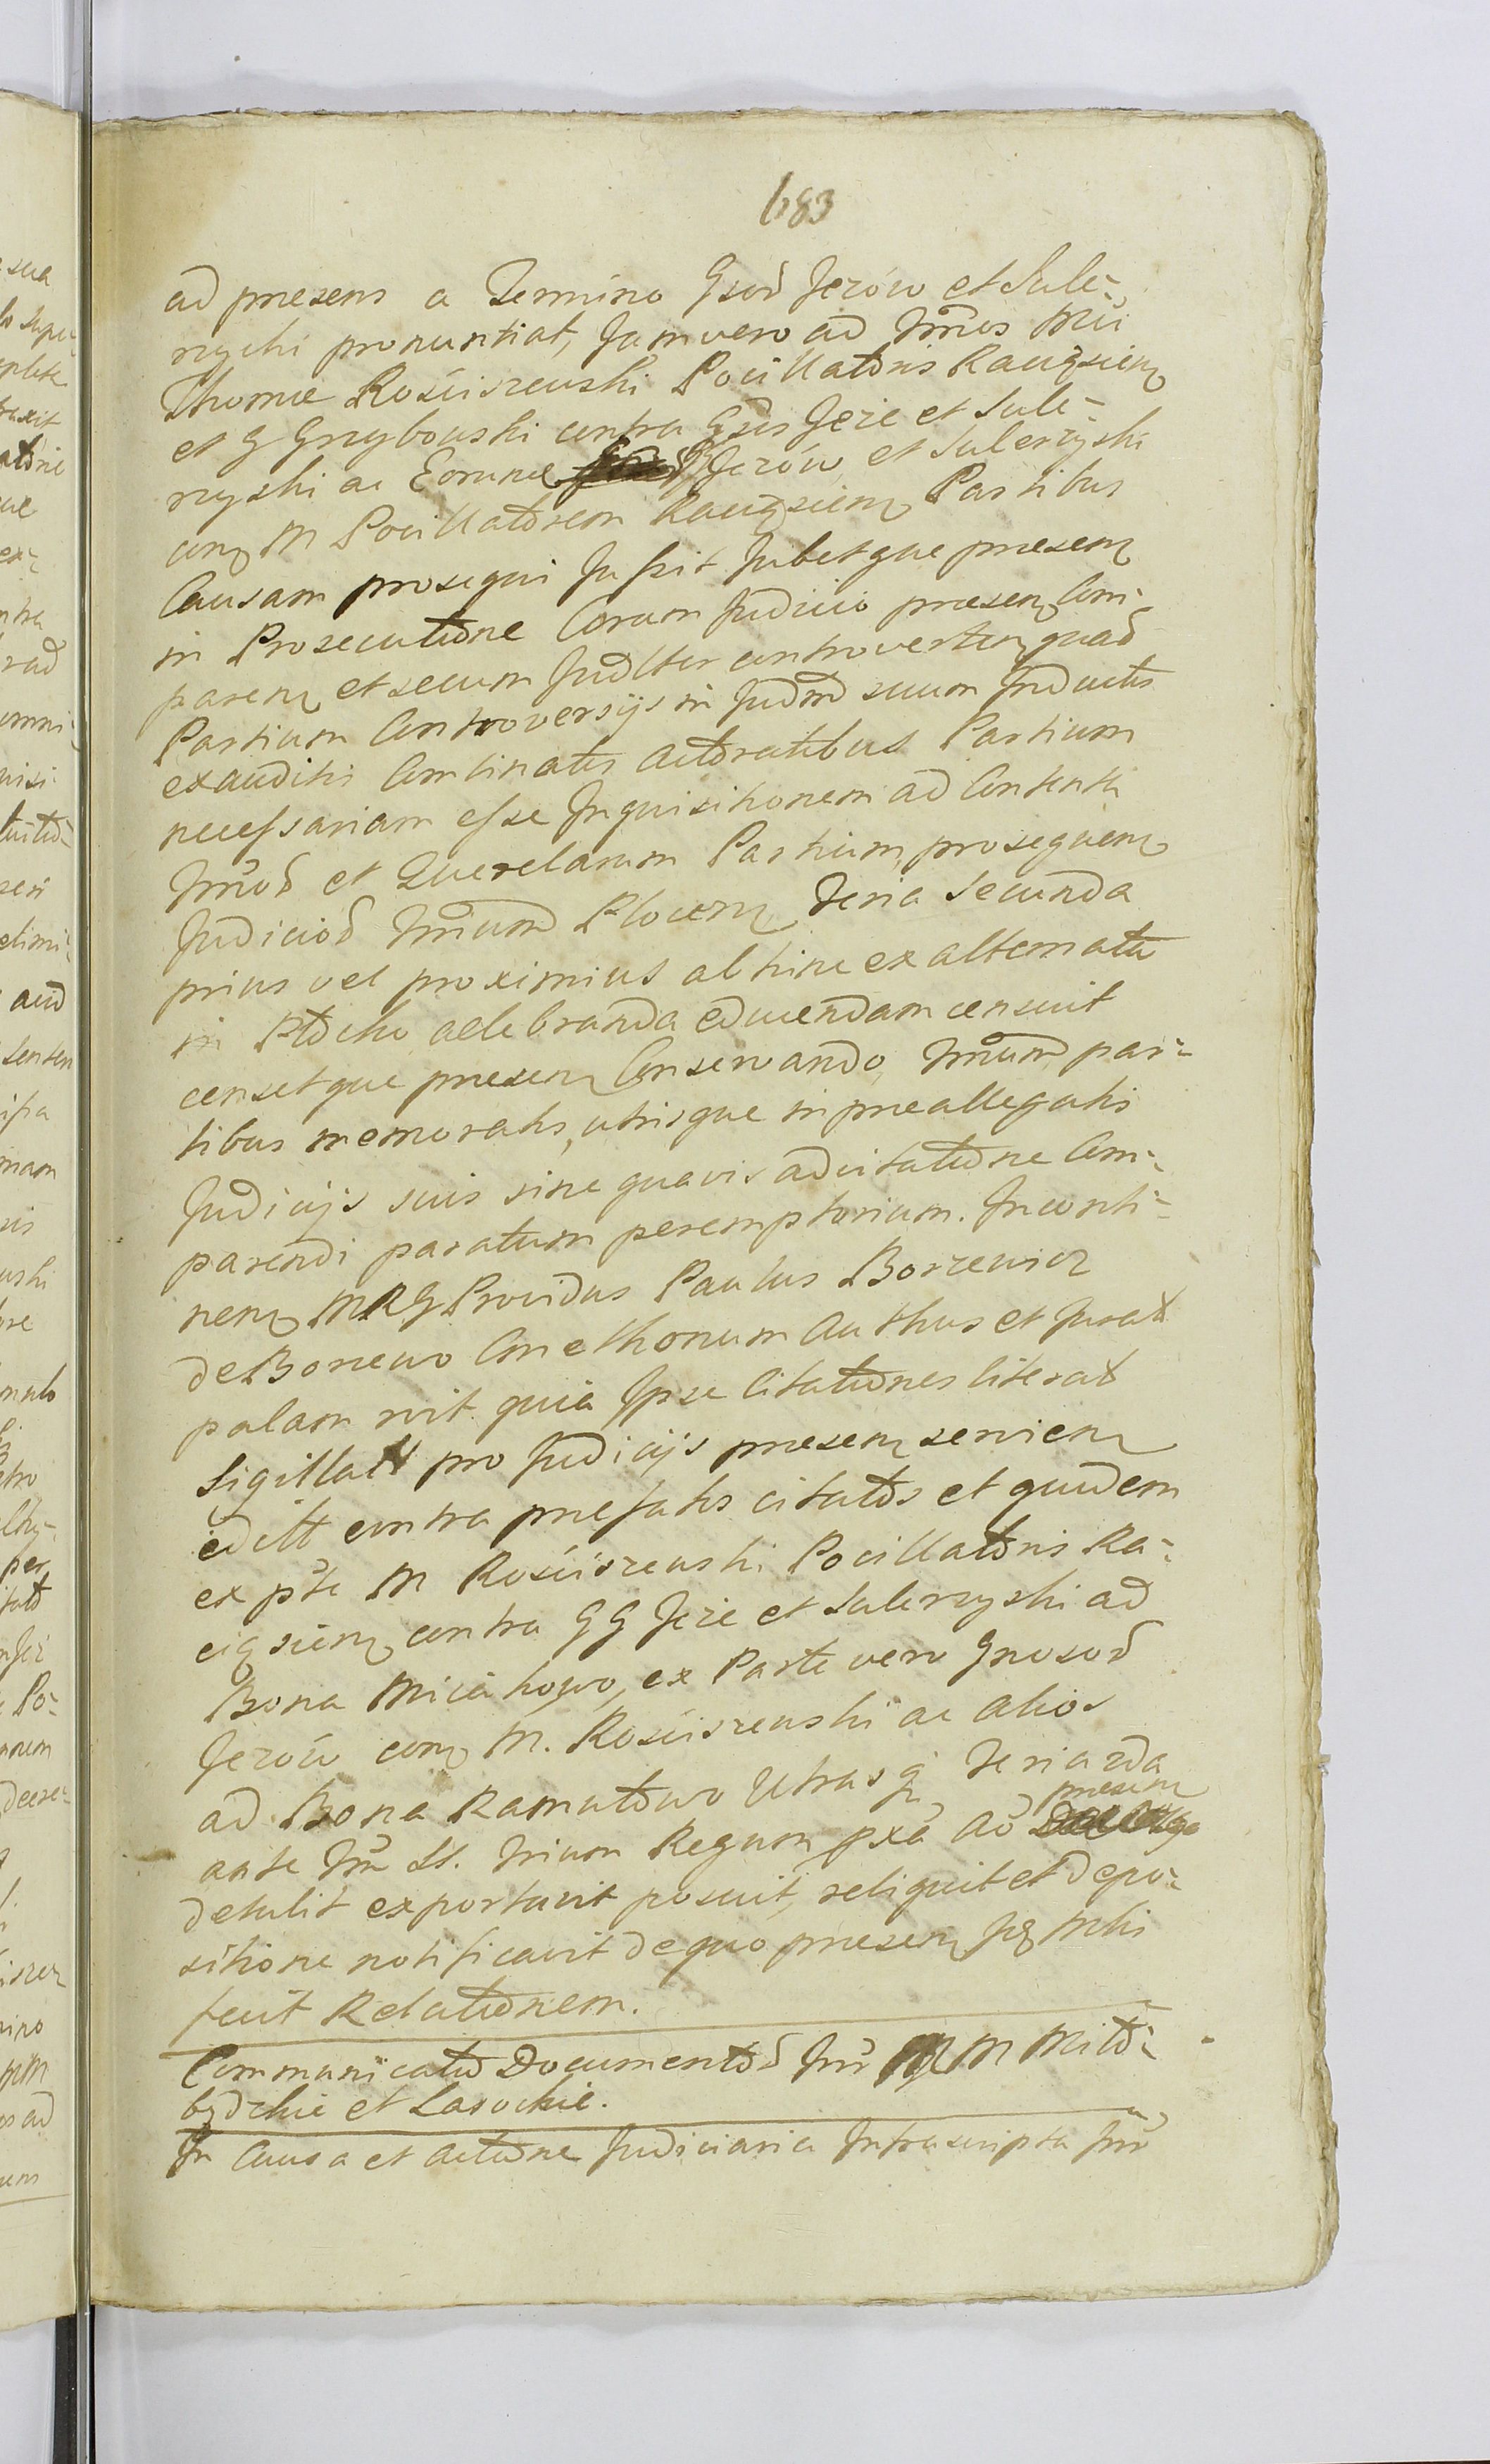 683
ad praesens a Termino Gsord Jezów et Sule-
rzycki pronuntiat, Jam vero ad Tmos Mci
Thomae Rościszewski Pocillatoris Raciązsiens
et G Grzybowski contra Gsos Jeże et Sule-
rzyski ac Eorund Jezów et Sulerzyski
cum M Pocillatorem Raciązsiens Partibus
Causam prosequi Jussit Jubetque praesens
in Prosecutione Coram Judicio praesens Com-
parens et secum Judlter controvertens quad
Partium Controversijs in Judm suum Inductis
exauditis Combinatis Actoratibus Partium
necessariam esse Inquisitionem ad Contenta
Tmord et Querelarum Partium, prosequens
Judiciord Tmium Plocens Feria Secunda
prius vel proximius ab hinc ex alternata
in Płocko celebranda educendam censuit
censetque praesens Conservando, Tmum par-
tibus memoratis, utrisque in praeallegatis
Judicijs suis sine quavis adcitatione Com-
parendi paratum peremptorium. Inconti-
nens MRG Providus Paulus Borzewicz
de Borzewo Cmethonum Authus et Jurat
palam rvit quia Ipse Citationes literat
Sigillatt pro Judicijs praesens serviens
editt contra praefatos citatos et quidem
ex pte M Rościszewski Pocillatoris Ra-
ciązsiens contra GG Jeże et Sulerzyski ad
Bona Miciahowo, ex Parte vero Gnosord
Jezów cum M. Rościszewski ac alios
ad Bona Ramutowo Utrasq Feria 2da
ante Tm SS. Trium Regum pxa Ao praesens
detulit exportavit posuit, reliquit et depo-
sitione notificavit de quo praesens Jg Mhi
fecit Relationem.
Communicatio Documentord Inr M M Mito-
bydzkie et Lasockie.
In Causa et Actione Judiciaria Infrascripta Inr